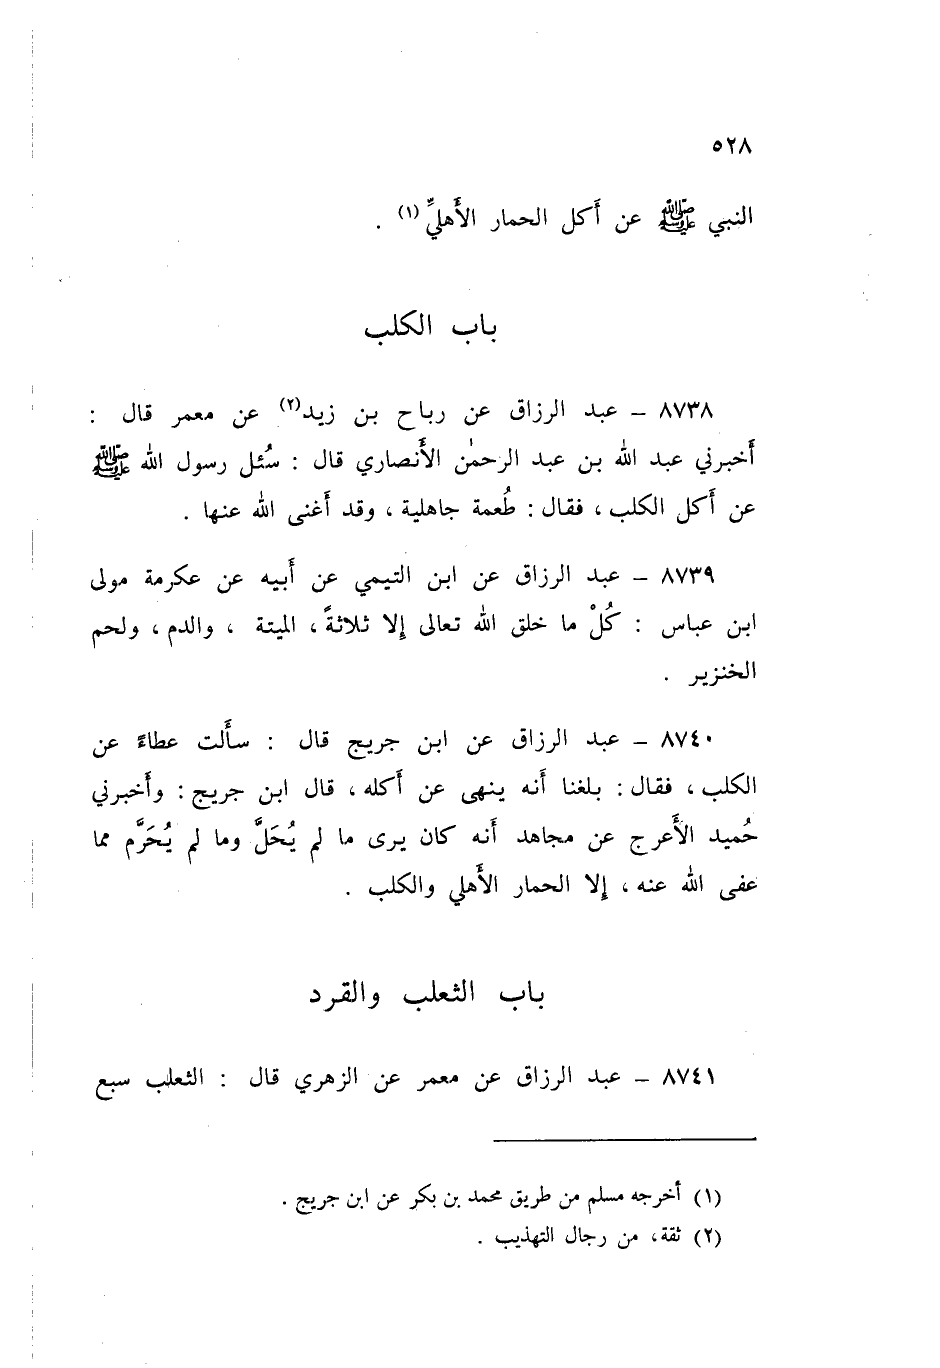 ٥٢٨
النبي ﷺ عن أَكل الحمار الأَهليِّ (١) .
باب الكلب
٨٧٣٨ – عبد الرزاق عن رباح بن زيد(٢) عن معمر قال :
أَخبرني عبد الله بن عبد الرحمٰن الأَنصاري قال : سُئل رسول الله ﷺ
عن أَكل الكلب ، فقال : طُعمة جاهلية ، وقد أَغنى الله عنها .
٨٧٣٩ – عبد الرزاق عن ابن التيمي عن أَبيه عن عكرمة مولى
ابن عباس : كُلْ ما خلق الله تعالى إِلا ثلاثةً ، الميتة ، والدم ، ولحم
الخنزير .
٨٧٤٠ – عبد الرزاق عن ابن جريج قال : سأَلت عطاءً عن
الكلب ، فقال : بلغنا أَنه ينهى عن أَكله ، قال ابن جريج : وأَخبرني
حُميد الأَعرج عن مجاهد أَنه كان يرى ما لم يُحَلَّ وما لم يُحَرَّم مما
عفى الله عنه ، إِلا الحمار الأَهلي والكلب .
باب الثعلب والقرد
٨٧٤١ – عبد الرزاق عن معمر عن الزهري قال : الثعلب سبع
(١) أخرجه مسلم من طريق محمد بن بكر عن ابن جريج .
(٢) ثقة ، من رجال التهذيب .